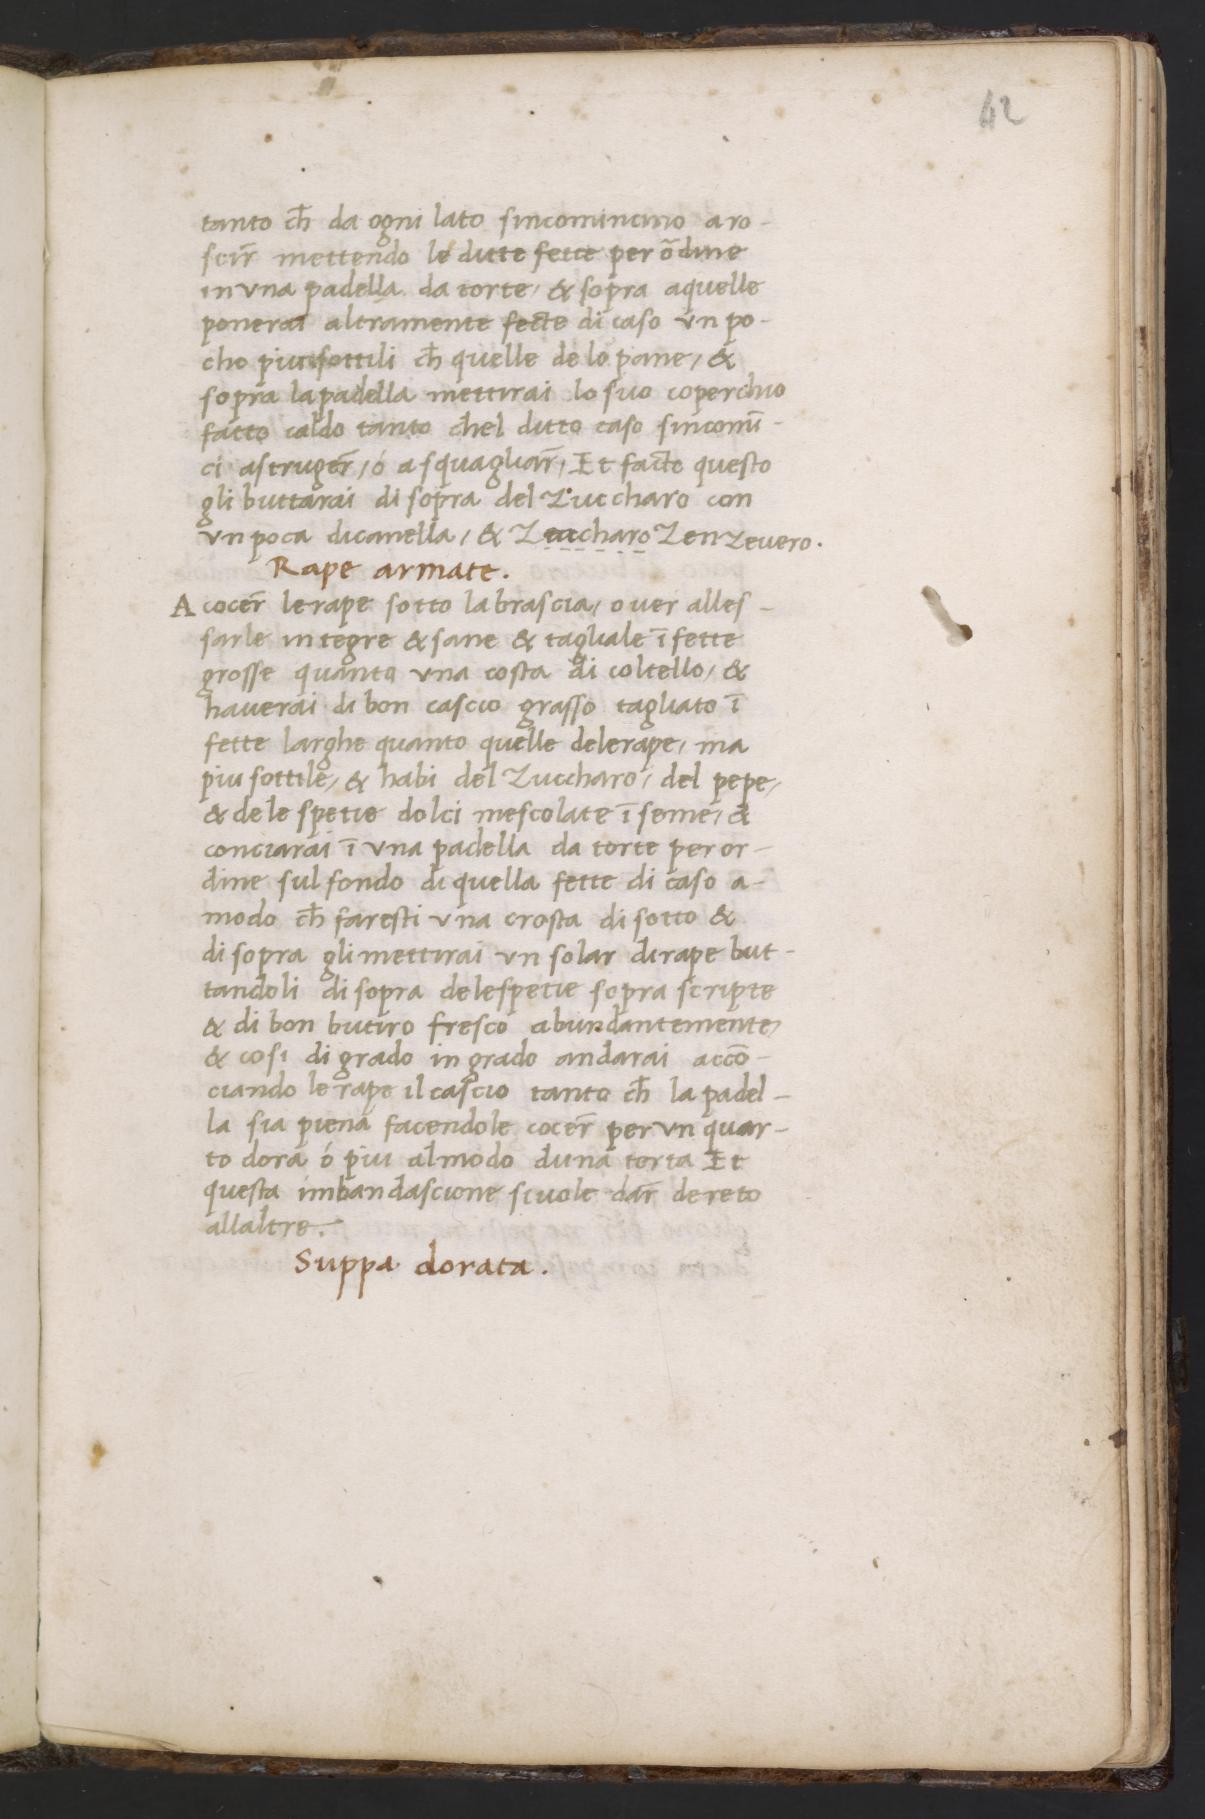 42
tanto ch̄ da ogni lato sincomincino a ro-
scir̄ mettendo le ditte fette per ōdine
in una padella da torte, & sopra aquelle
ponerai altramente fecte di caso un po-
cho piu sottili ch̄ quelle de lo pane, &
sopra la padella mettirai lo suo coperchio
fatto caldo tanto chel ditto caso sincomī-
ci astruger̄, ó a squagliar̄, Et facto questo
gli buttarai di sopra del Zuccharo con
un poca di canella, & Zuccharo Zenzevero.
Rape armate.
A cocer̄ le rape sotto la brascia, over alles-
sarle integre & sane & tagliale ī fette
grosse quanto una costa di coltello, &
haverai di bon cascio grasso tagliato ī
fette larghe quanto quelle dele rape, ma
piu sottile, & habi del Zuccharo, del pepe,
& de le spetie dolci mescolate ī seme, &
conciarai ī una padella da torte per or-
dine sul fondo di quella fette di caso a-
modo ch̄ faresti una crosta di sotto &
di sopra gli mettirai un solar di rape but-
tandoli di sopra dele spetie sopra scripte
& di bon butiro fresco abundantemente,
& cosi di grado in grado andarai accō-
ciando le rape il cascio tanto ch̄ la padel-
la sia piena facendole cocer̄ per un quar-
to dora ó piu al modo duna torta Et
questa imbandascione si vuole dar̄ dereto
allaltre.
Suppa dorata.